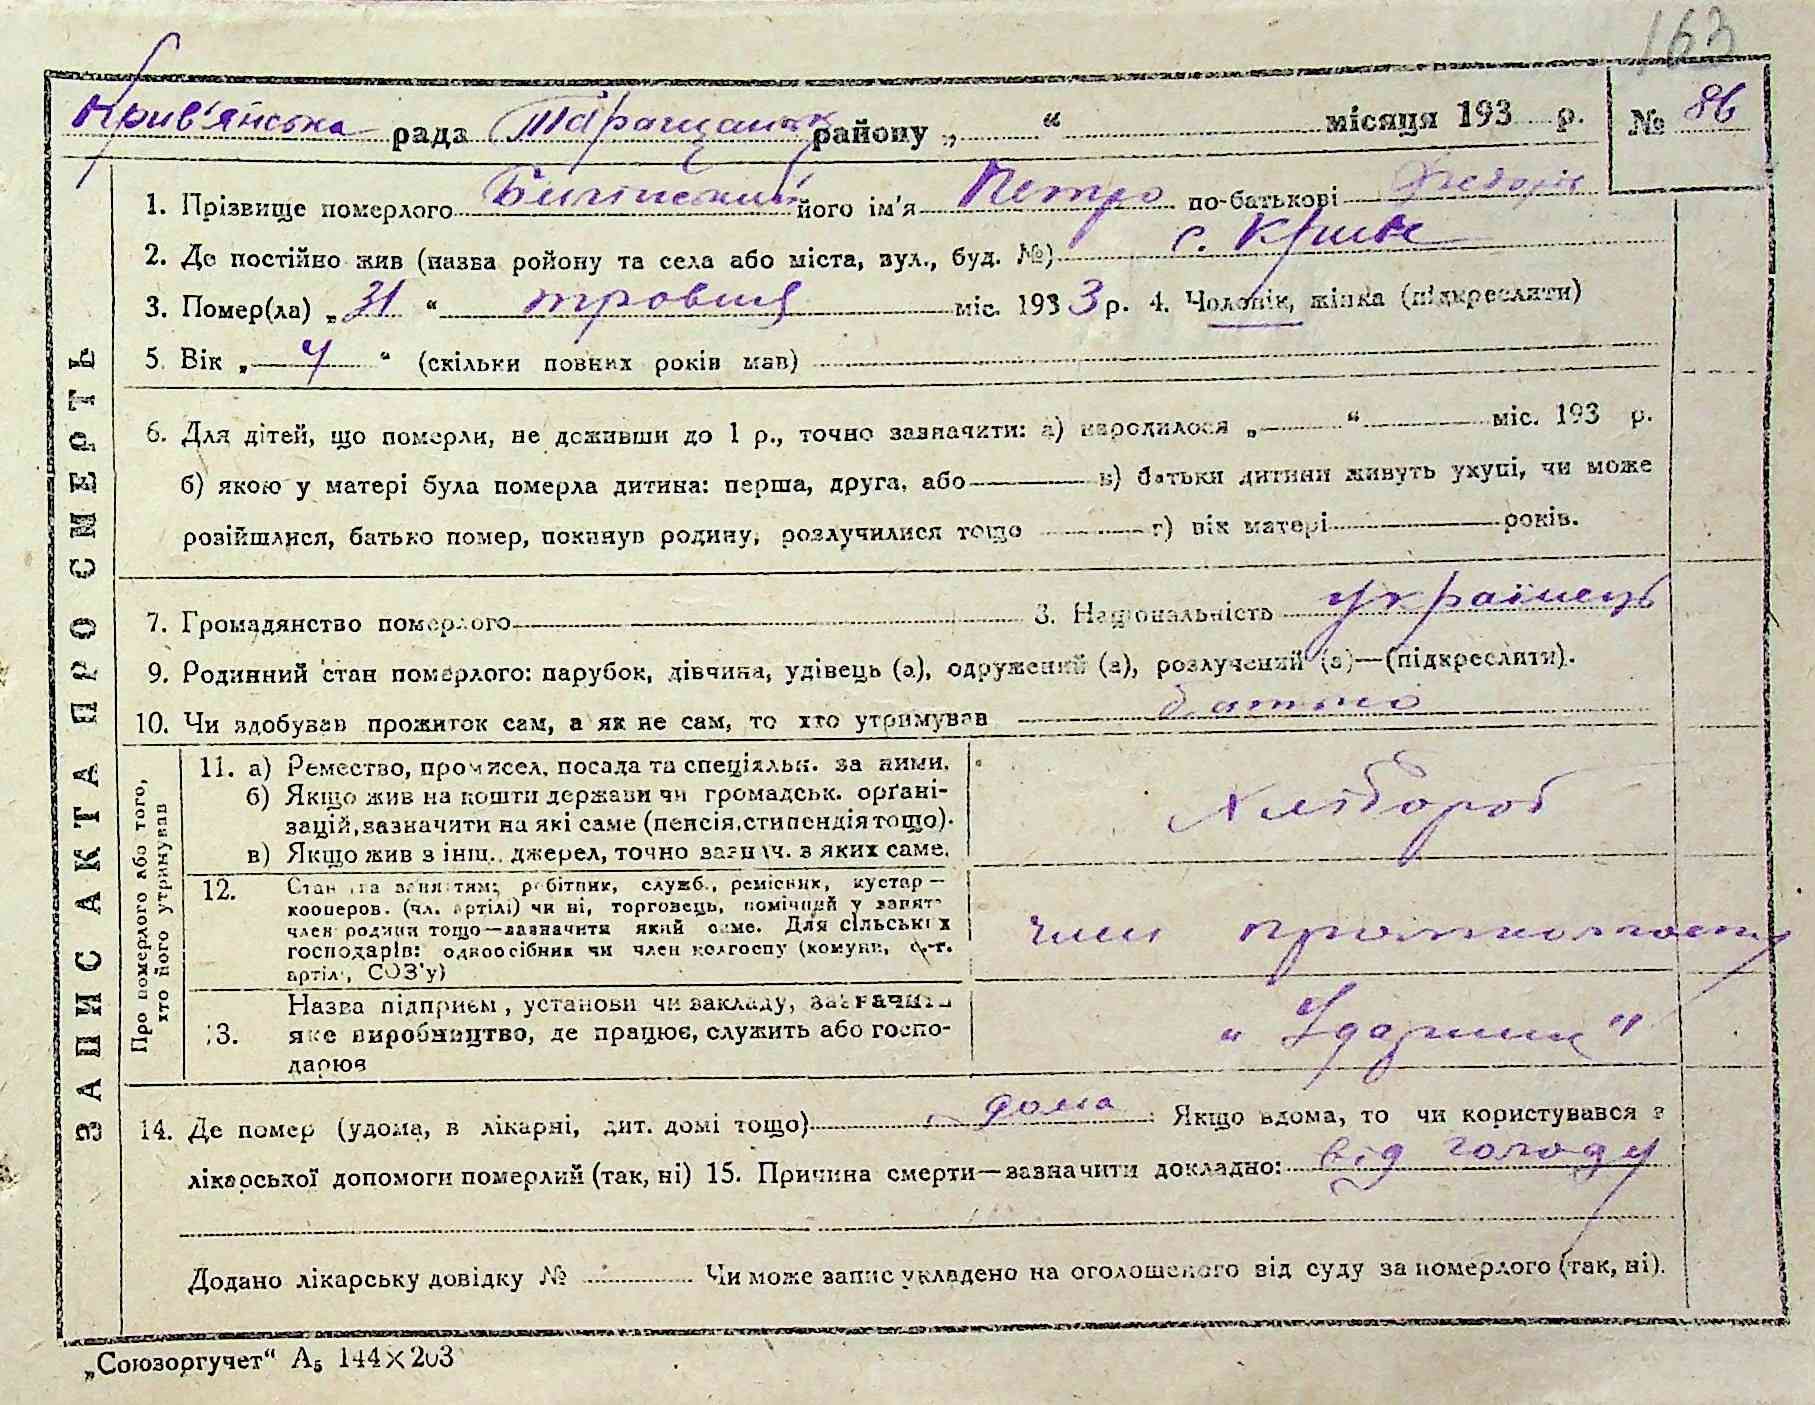 163
Крив'янська рада Таращанськ району „ “ місяця 193 р. № 86
1. Прізвище померлого його ім'я Петро по-батькові
2. Де постійно жив (назва ройону та села або міста, вул., буд. №) с. Криве
3. Помер(ла) „31 “ травня міс. 1933 р. 4. Чоловік, жінка (підкреслити)
5. Вік „ 4 “ (скільки повних років мав)
6. Для дітей, що померли, не доживши до 1 р., точно зазначити: а) народилося „ “ міс. 193 р.
б) якою у матері була померла дитина: перша, друга, або в) батьки дитини живуть укупі, чи може
розійшлися, батько помер, покинув родину, розлучилися тощо г) вік матері років.
7. Громадянство померлого 8. Національність українець
9. Родинний стан померлого: парубок, дівчина, удівець (а), одружений (а), розлучений (а)—(підкреслити).
10. Чи здобував прожиток сам, а як не сам, то хто утримував батько
ЗАПИС АКТА ПРО СМЕРТЬ
Про померлого або того,
хто його утримував
11. а) Ремество, промисел, посада та спеціяльн. за ними.
б) Якщо жив на кошти держави чи громадськ. орґані-
зацій, зазначити на які саме (пенсія, стипендія тощо).
в) Якщо жив з інш. джерел, точно зазнач. з яких саме.
Хлібороб
12. Стан за заняттям: робітник, служб., ремісник, кустар—
кооперов. (чл. артілі) чи ні, торговець, помічний у занят.
член родини тощо—зазначити який саме. Для сільських
господарів: одноосібник чи член колгоспу (комуни, с.-г.
артілі, СОЗ'у)
член
13. Назва підприєм, установи чи закладу, зазначить
яке виробництво, де працює, служить або госпо-
дарює
„ Ударник "
14. Де помер (удома, в лікарні, дит. домі тощо) дома Якщо вдома, то чи користувався з
лікарської допомоги померлий (так, ні) 15. Причина смерти—зазначити докладно: від голоду
Додано лікарську довідку № Чи може запис укладено на оголошеного від суду за померлого (так, ні).
„Союзоргучет“ А5 144×203